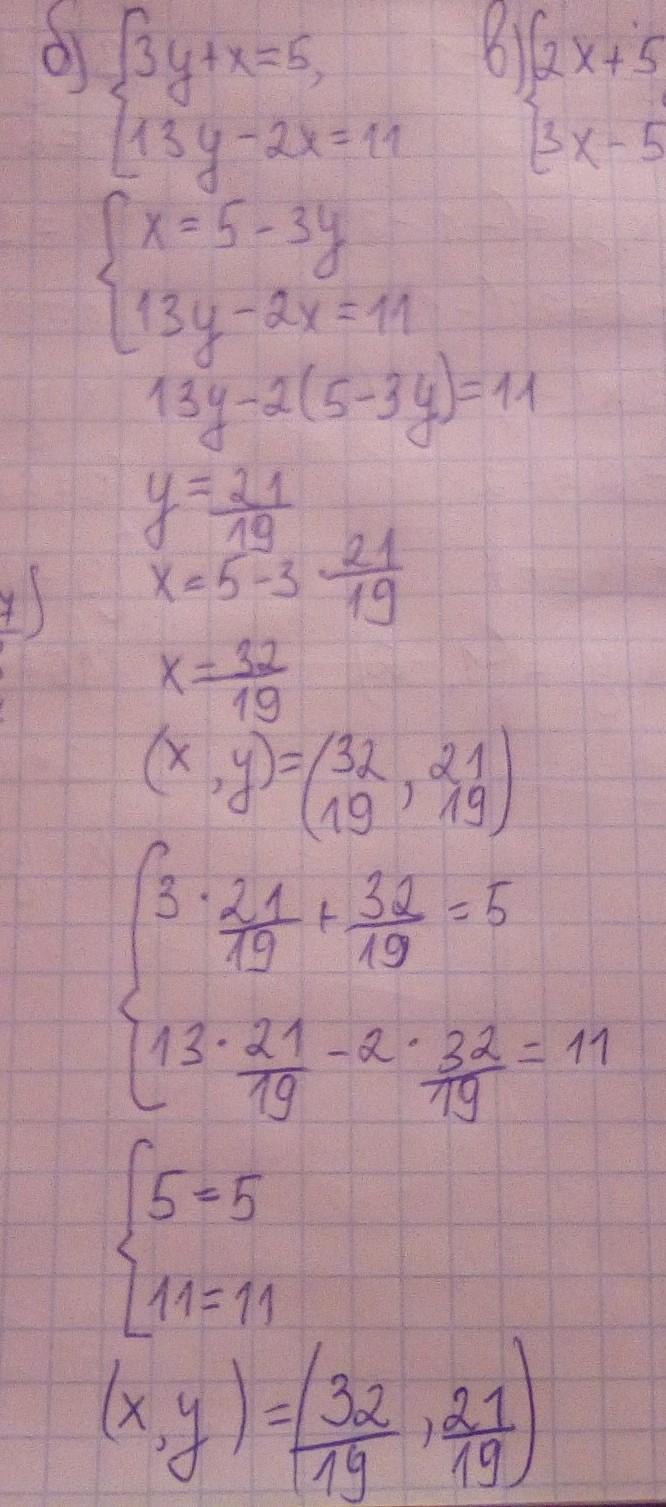 б) { 3y+x=5,
13y-2x=11
в) { 2x+5
3x-5
{ x=5-3y
13y-2x=11
13y-2(5-3y)=11
y=21/19
x=5-3·21/19
x=32/19
(x,y)=(32/19, 21/19)
{ 3·21/19+32/19=5
13·21/19-2·32/19=11
{ 5=5
11=11
(x,y)=(32/19, 21/19)